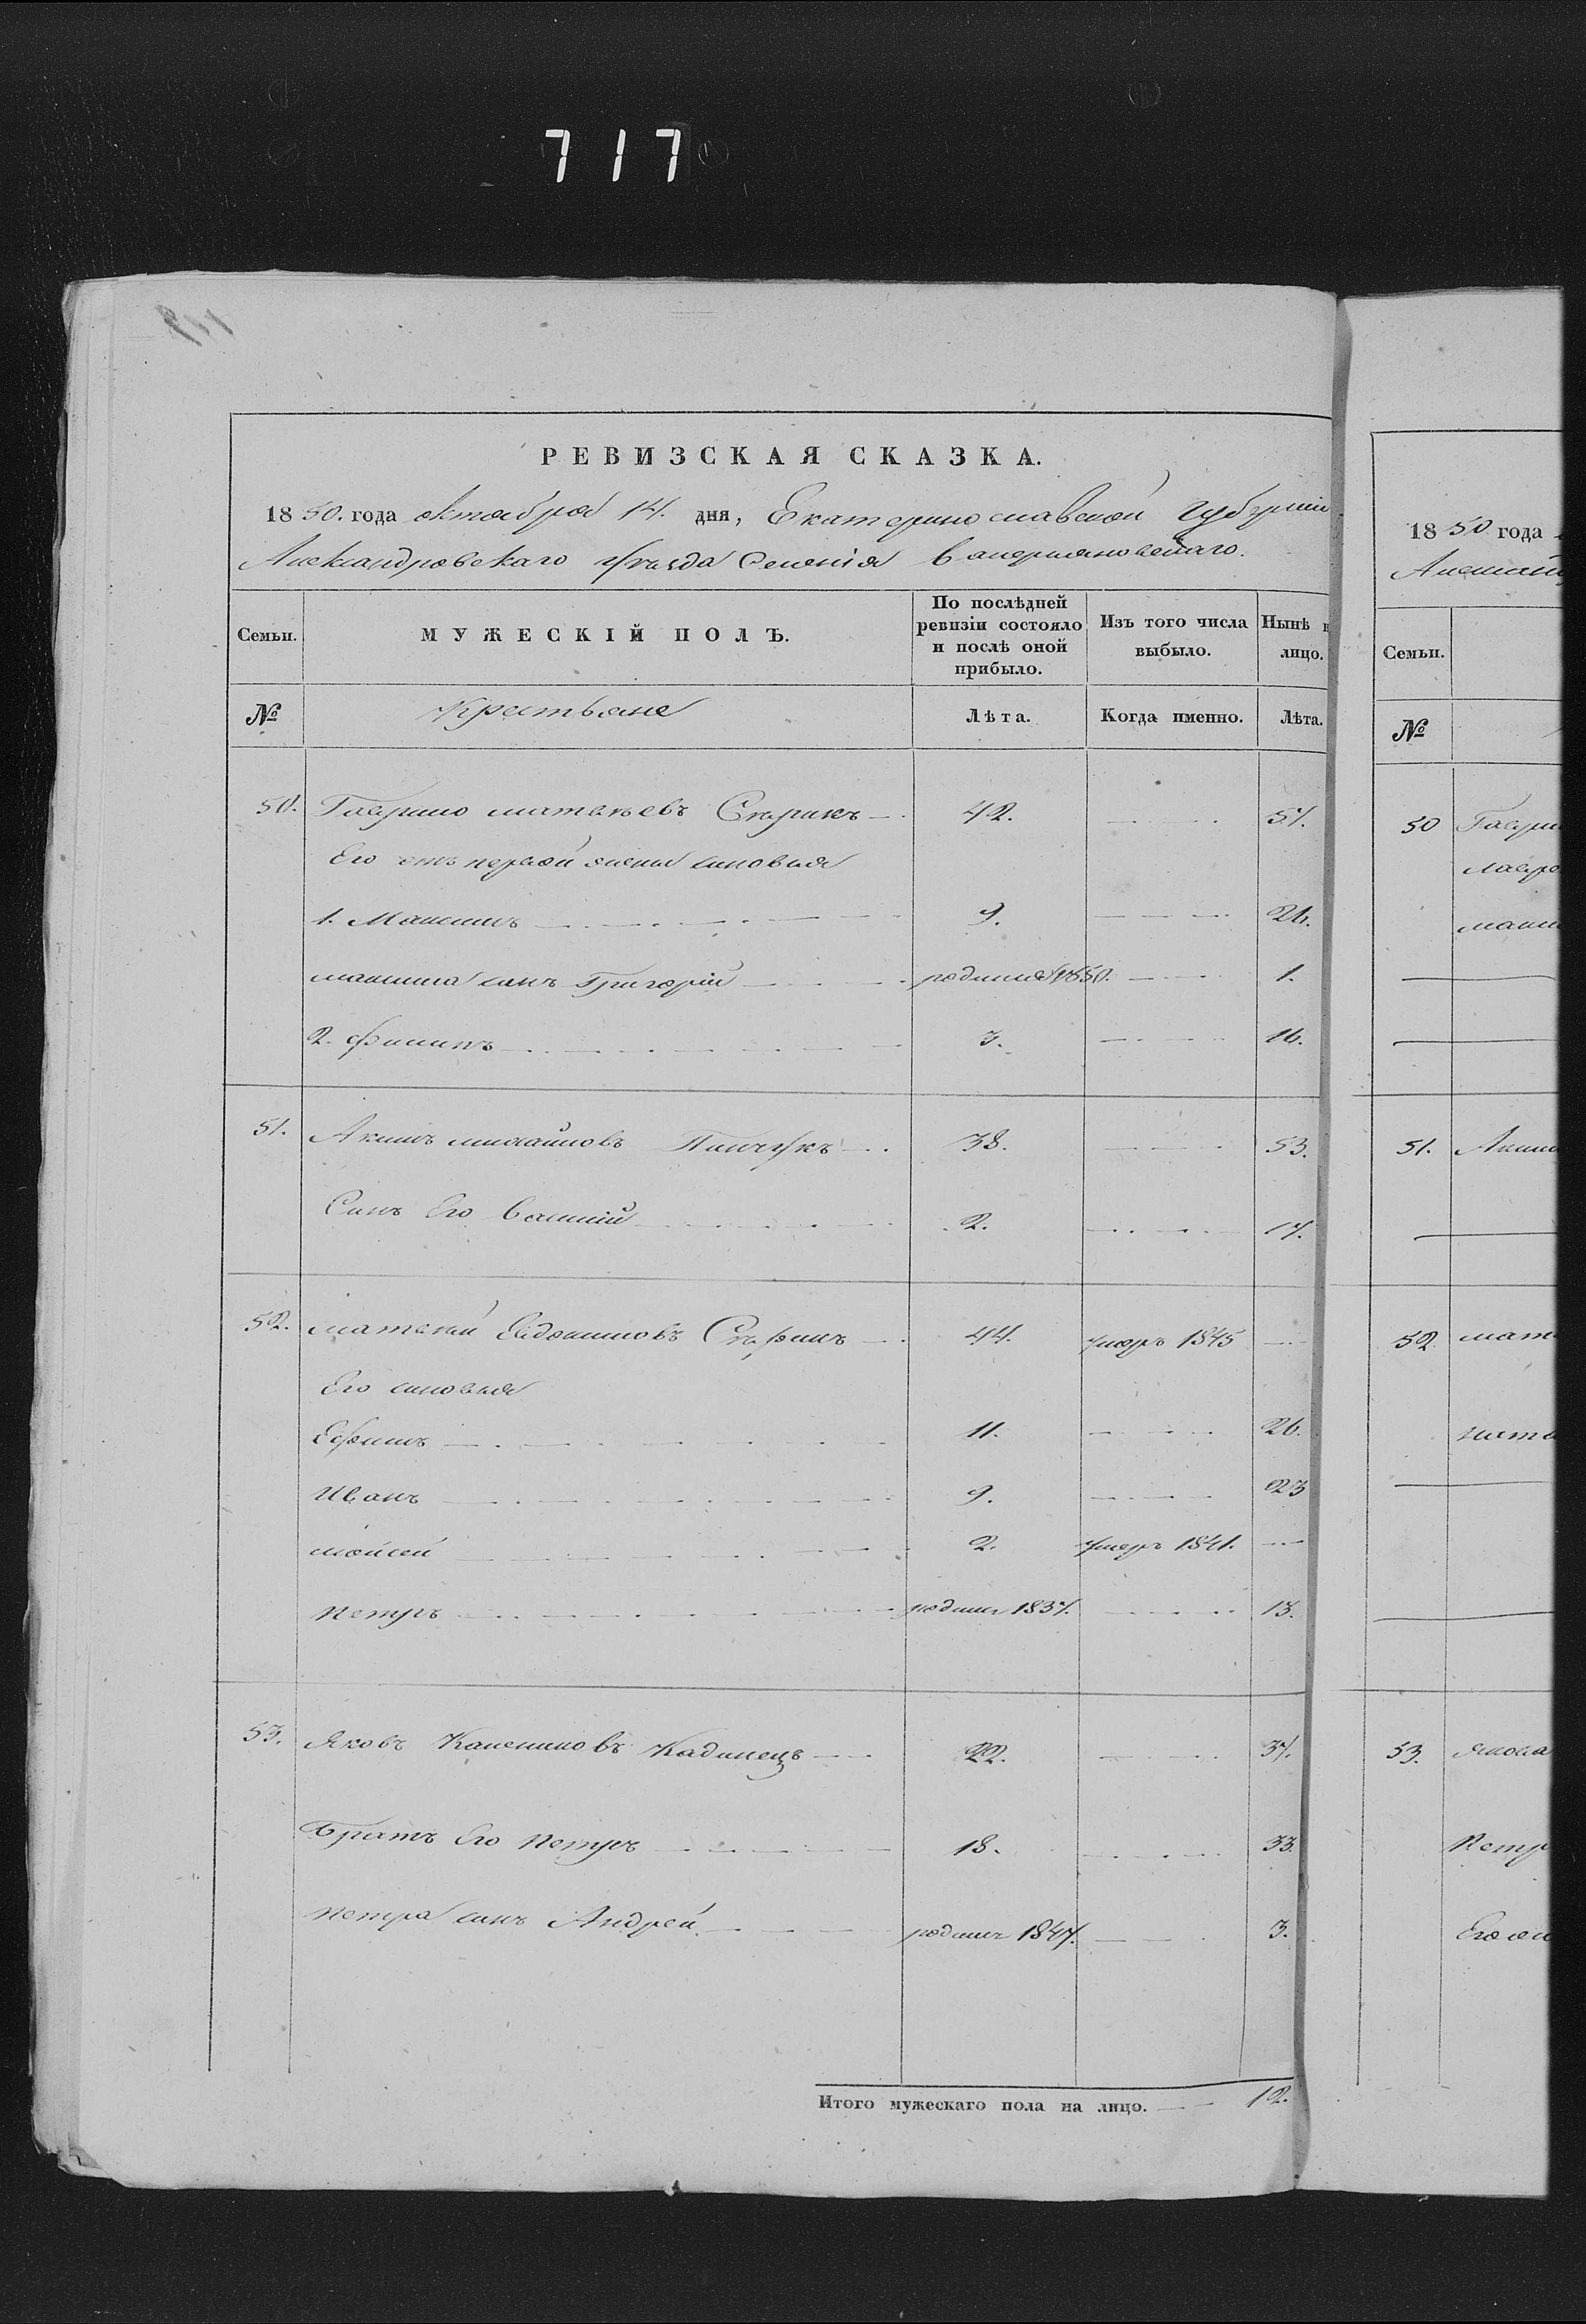 717
РЕВИЗСКАЯ СКАЗКА.
1850. года октября 14. дня, Екатеринославской губерніи
Александровскаго уѣзда Селенія Валерьяновскаго.
Семьи. МУЖЕСКІЙ ПОЛЪ. По послѣдней ревизіи состояло и послѣ оной прибыло. Изъ того числа выбыло. Нынѣ лицо.
№ Крестьяне Лѣта. Когда именно. Лѣта.
50. Гаврило матвѣевъ 42. 57.
Его отъ первой жены сыновья
1. Максимъ 9. 24.
максима сынъ Григорій родился 1850. 1.
2. Филипъ 3. 16.
51. Акимъ михайловъ Пинчукъ 38. 53.
Сынъ Его Василій 2. 17.
52. матвѣй Евдокимовъ 44. умеръ 1845
Его сыновья
Ефимъ 11. 26.
Иванъ 9. 23
мойсей 2. умеръ 1841.
петръ родился 1837. 13.
53. Яковъ Калениковъ Кадинецъ 22. 37.
братъ Его петръ 18. 33.
петра сынъ Андрей родился 1847. 3.
Итого мужескаго пола на лицо. 12.
1850 года
Семьи.
№
50
51.
52
53.